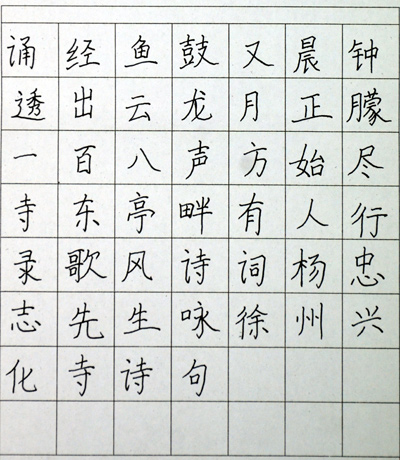 诵经鱼鼓又晨钟
透出云龙月正朦
一百八声方始尽
寺东亭畔有人行
录歌风诗词杨忠
志先生咏徐州兴
化寺诗句